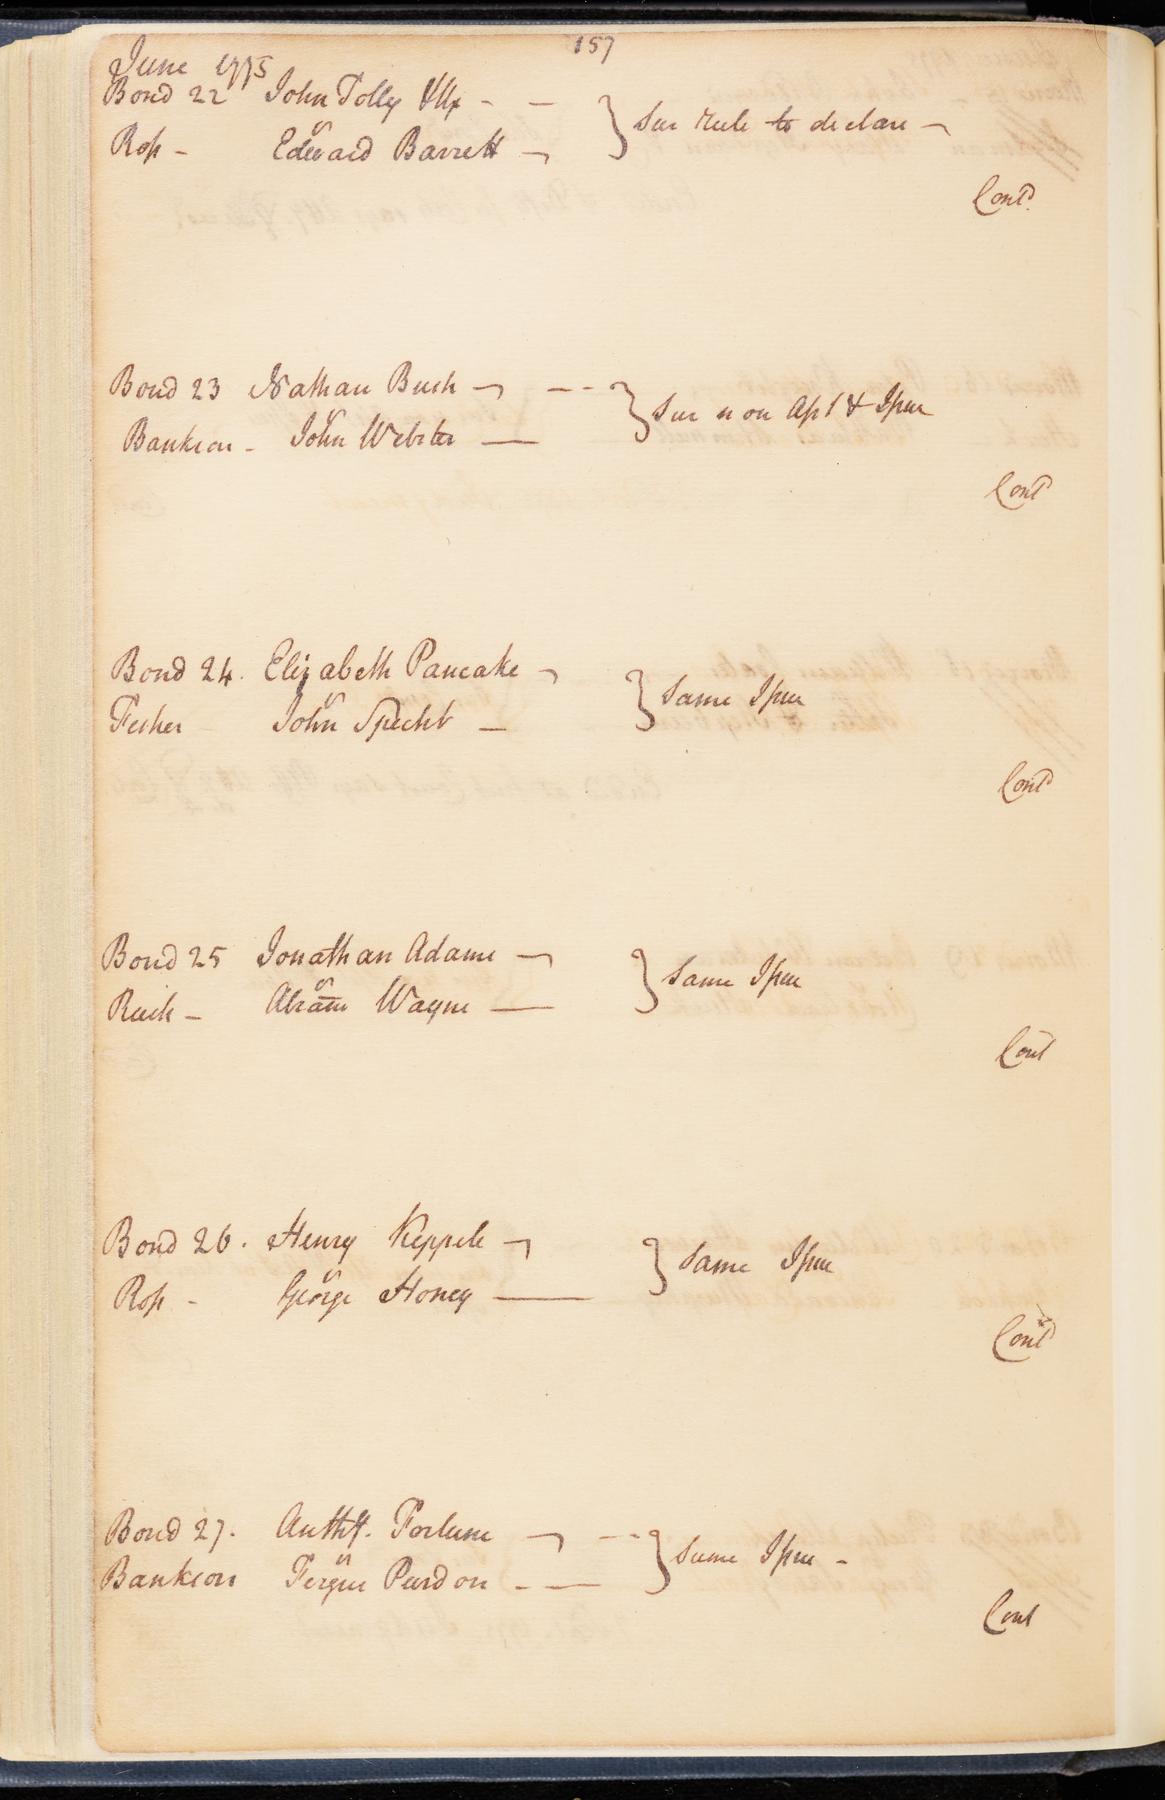 157
June 1775
Bond 22 John Tolly Ux - -
vs
Ross - Edward Barrett
} Sur rule to declare
Contd.
Bond 23 Nathan Bush - - -
vs
Bankson - John Webster
} Sur non Apl & Issue
Contd
Bond 24. Elizabeth Pancake
vs
Fisher John Specht -
} Same Issue
Contd
Bond 25 Jonathan Adams
vs
Rush - Abram Wayne
} Same Issue
Cont
Bond 26. Henry Keppele
vs
Ross - George Honey
} Same Issue
Contd
Bond 27. Anthy. Fortune - - -
vs
Bankson Fergus Purdon - -
} Same Issue -
Cont